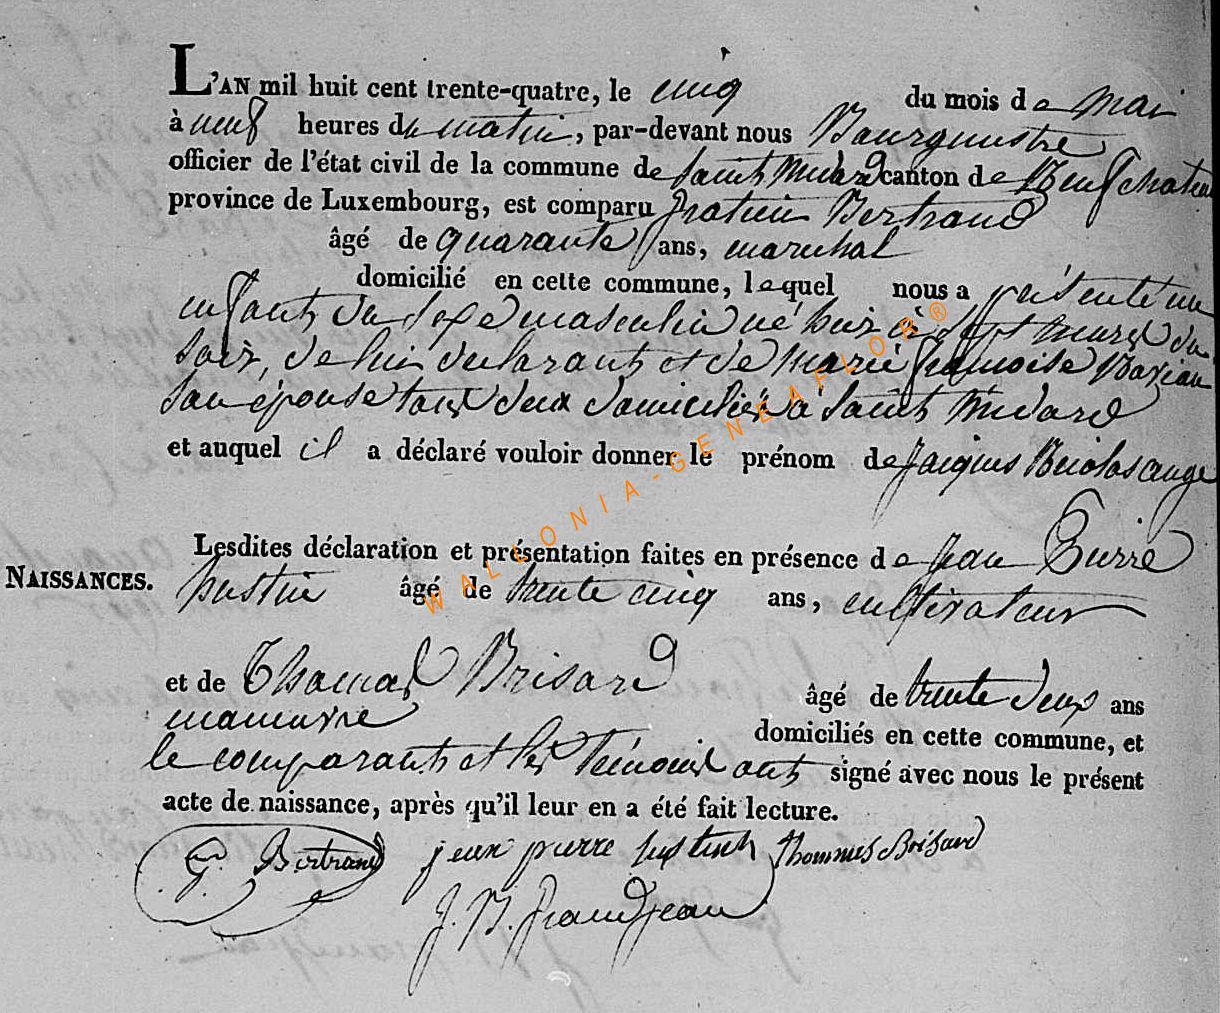 L'AN mil huit cent trente-quatre, le cinq du mois de Mai
à neuf heures du matin, par-devant nous Bourgmestre
officier de l'état civil de la commune de Saint Médard canton de Neufchateau
province de Luxembourg, est comparu Bertrand
âgé de quarante ans, maréchal
domicilié en cette commune, lequel nous a présenté un
enfant du sexe masculin né hier à sept heures du
soir, de lui déclarant et de Marie françoise
son épouse tous deux domiciliés à Saint Médard
et auquel il a déclaré vouloir donner le prénom de Jacques Nicolas ange
Lesdites déclaration et présentation faites en présence de Jean Pierre
NAISSANCES.
hustin âgé de trente cinq ans, cultivateur
et de Thomas Brisard âgé de trente deux ans
manœuvre domiciliés en cette commune, et
le comparant et les témoins ont signé avec nous le présent
acte de naissance, après qu'il leur en a été fait lecture.
G. Bertrand jean pierre hustin thommas Brisard
J. N. Grandjean
WALLONIA-GENEAFLOR®